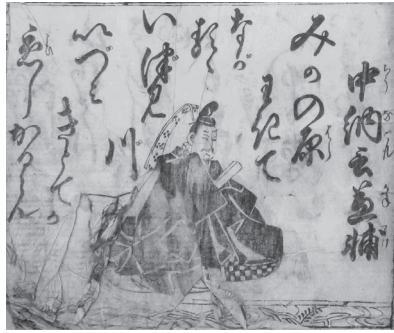 中納言兼輔
みかの原
わきて
なが
るゝ
いづみ
川
いつミ
きとてか
恋しかるらん